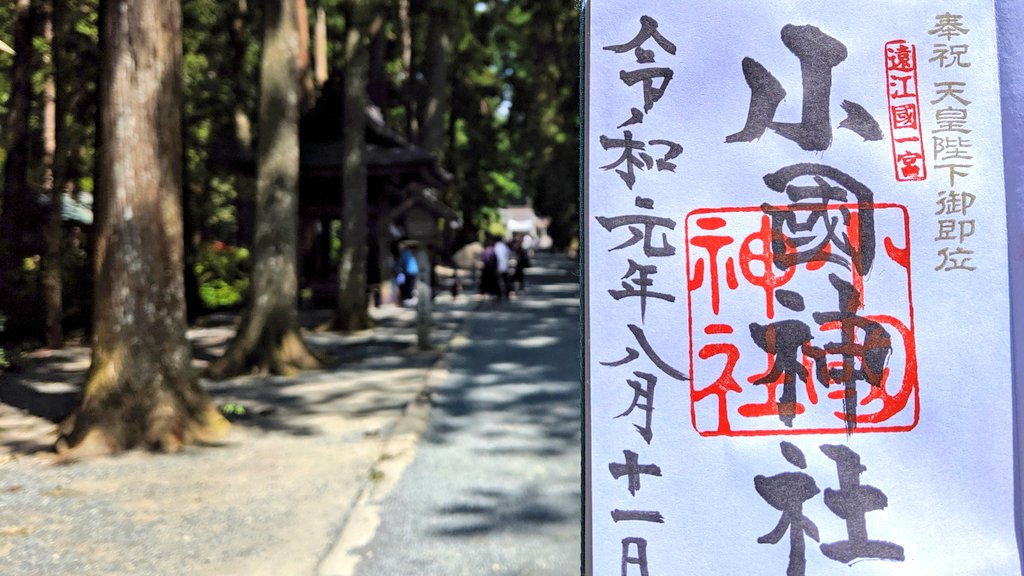 奉祝 天皇陛下御即位
遠江國一宮
小國神社
小國
神社
令和元年八月十一日